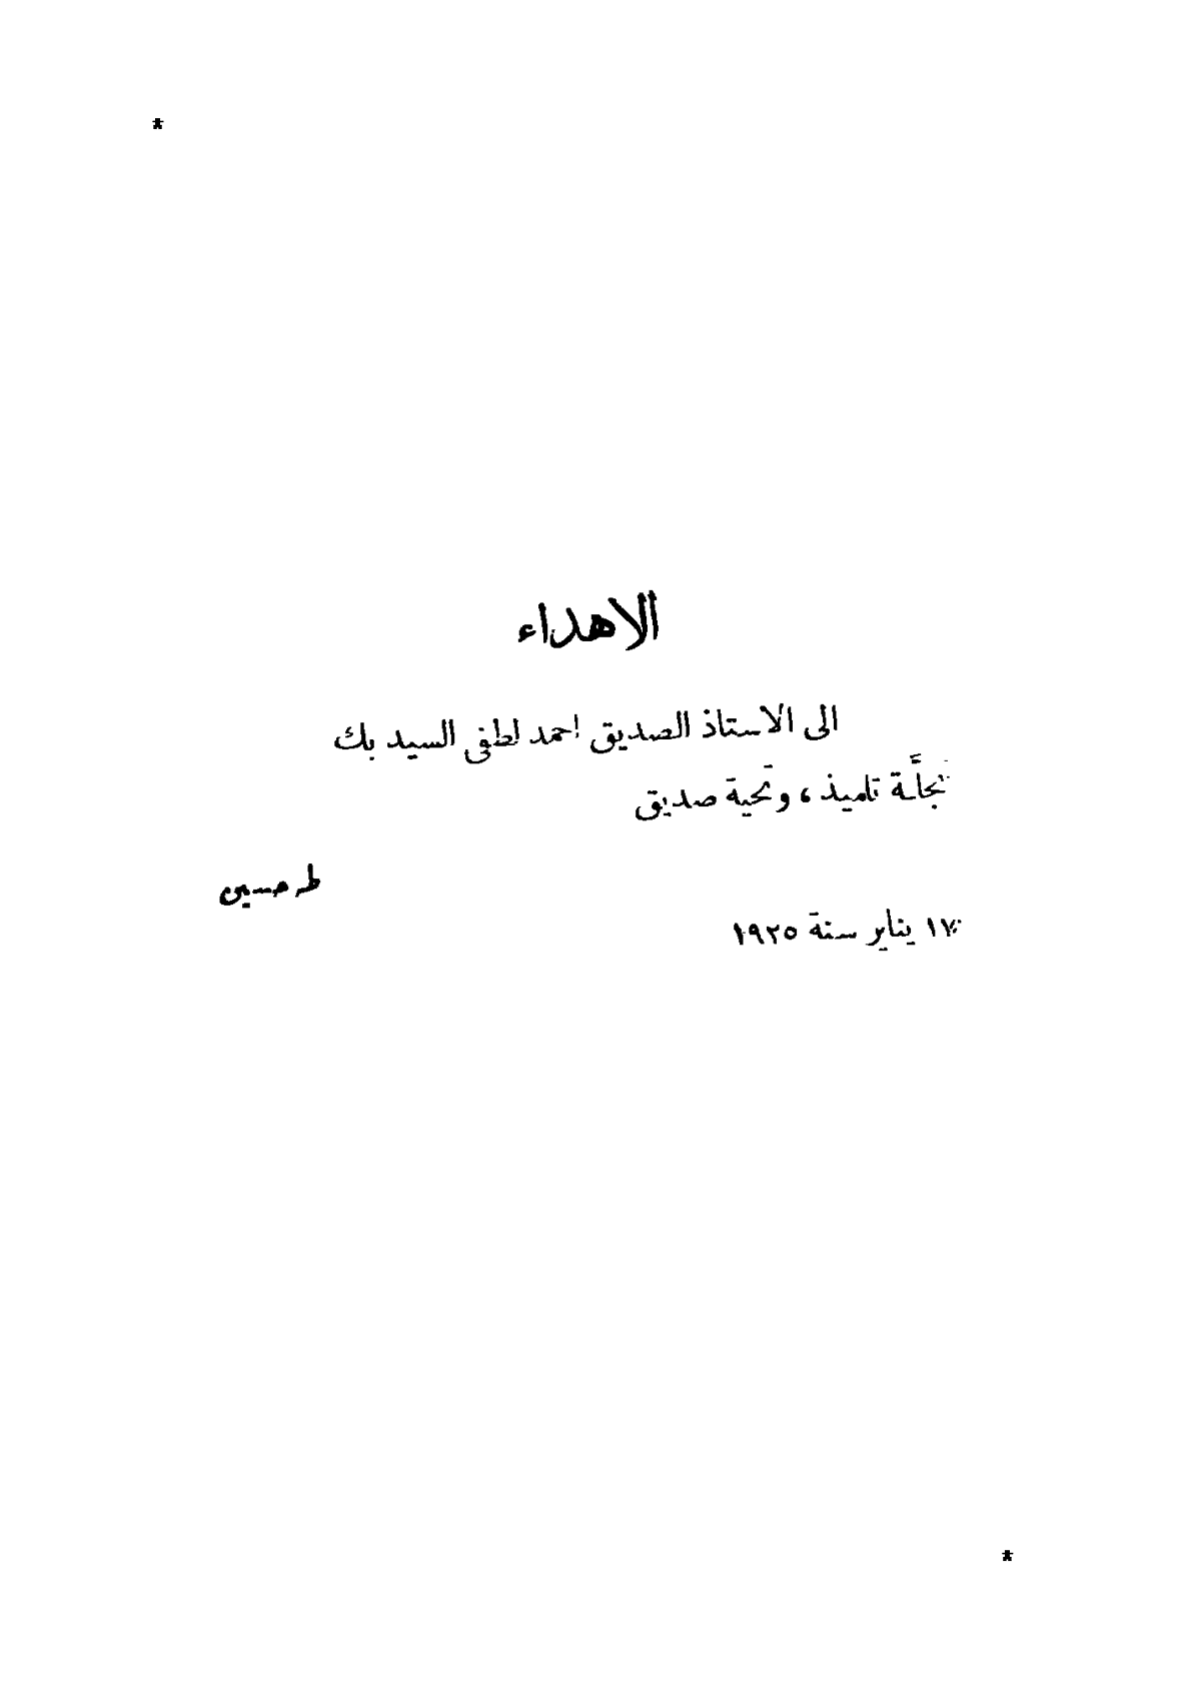 *
الاهداء
الى الاستاذ الصديق احمد لطفى السيد بك
تجلَّة تلميذ، وتحية صديق
طه حسين
١٧ يناير سنة ١٩٢٥
*